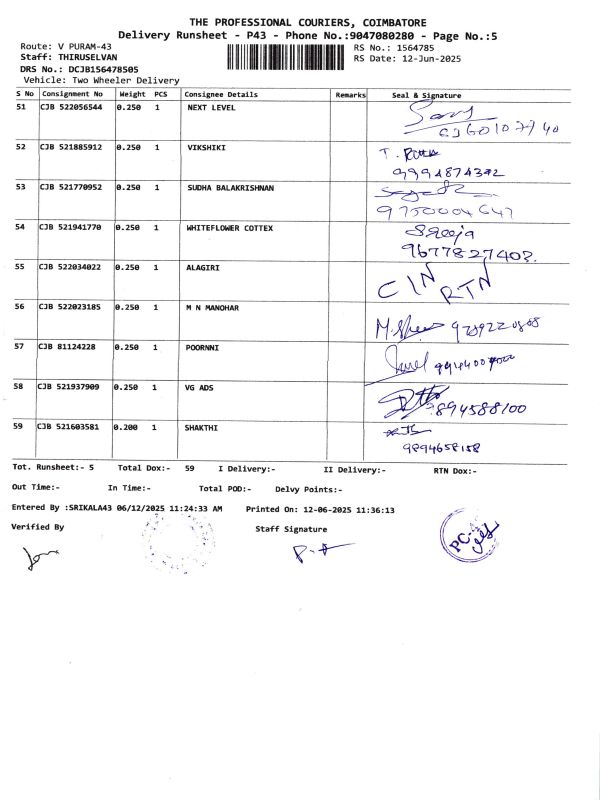 THE PROFESSIONAL COURIERS, COIMBATORE
Delivery Runsheet - P43 - Phone No.:9047080280 - Page No.:5
Route: V PURAM-43 RS No.: 1564785
Staff: THIRUSELVAN RS Date: 12-Jun-2025
DRS No.: DCJB156478505
Vehicle: Two Wheeler Delivery
S No Consignment No Weight PCS Consignee Details Remarks Seal & Signature
51 CJB 522056544 0.250 1 NEXT LEVEL
52 CJB 521885912 0.250 1 VIKSHIKI
9994874392
53 CJB 521770952 0.250 1 SUDHA BALAKRISHNAN
9750004647
54 CJB 521941770 0.250 1 WHITEFLOWER COTTEX Sreeja
9677827403.
55 CJB 522034022 0.250 1 ALAGIRI C/N RTN
56 CJB 522023185 0.250 1 M N MANOHAR
57 CJB 81124228 0.250 1 POORNNI
58 CJB 521937909 0.250 1 VG ADS
59 CJB 521603581 0.200 1 SHAKTHI
9894658158
Tot. Runsheet:- 5 Total Dox:- 59 I Delivery:- II Delivery:- RTN Dox:-
Out Time:- In Time:- Total POD:- Delvy Points:-
Entered By :SRIKALA43 06/12/2025 11:24:33 AM Printed On: 12-06-2025 11:36:13
Verified By Staff Signature